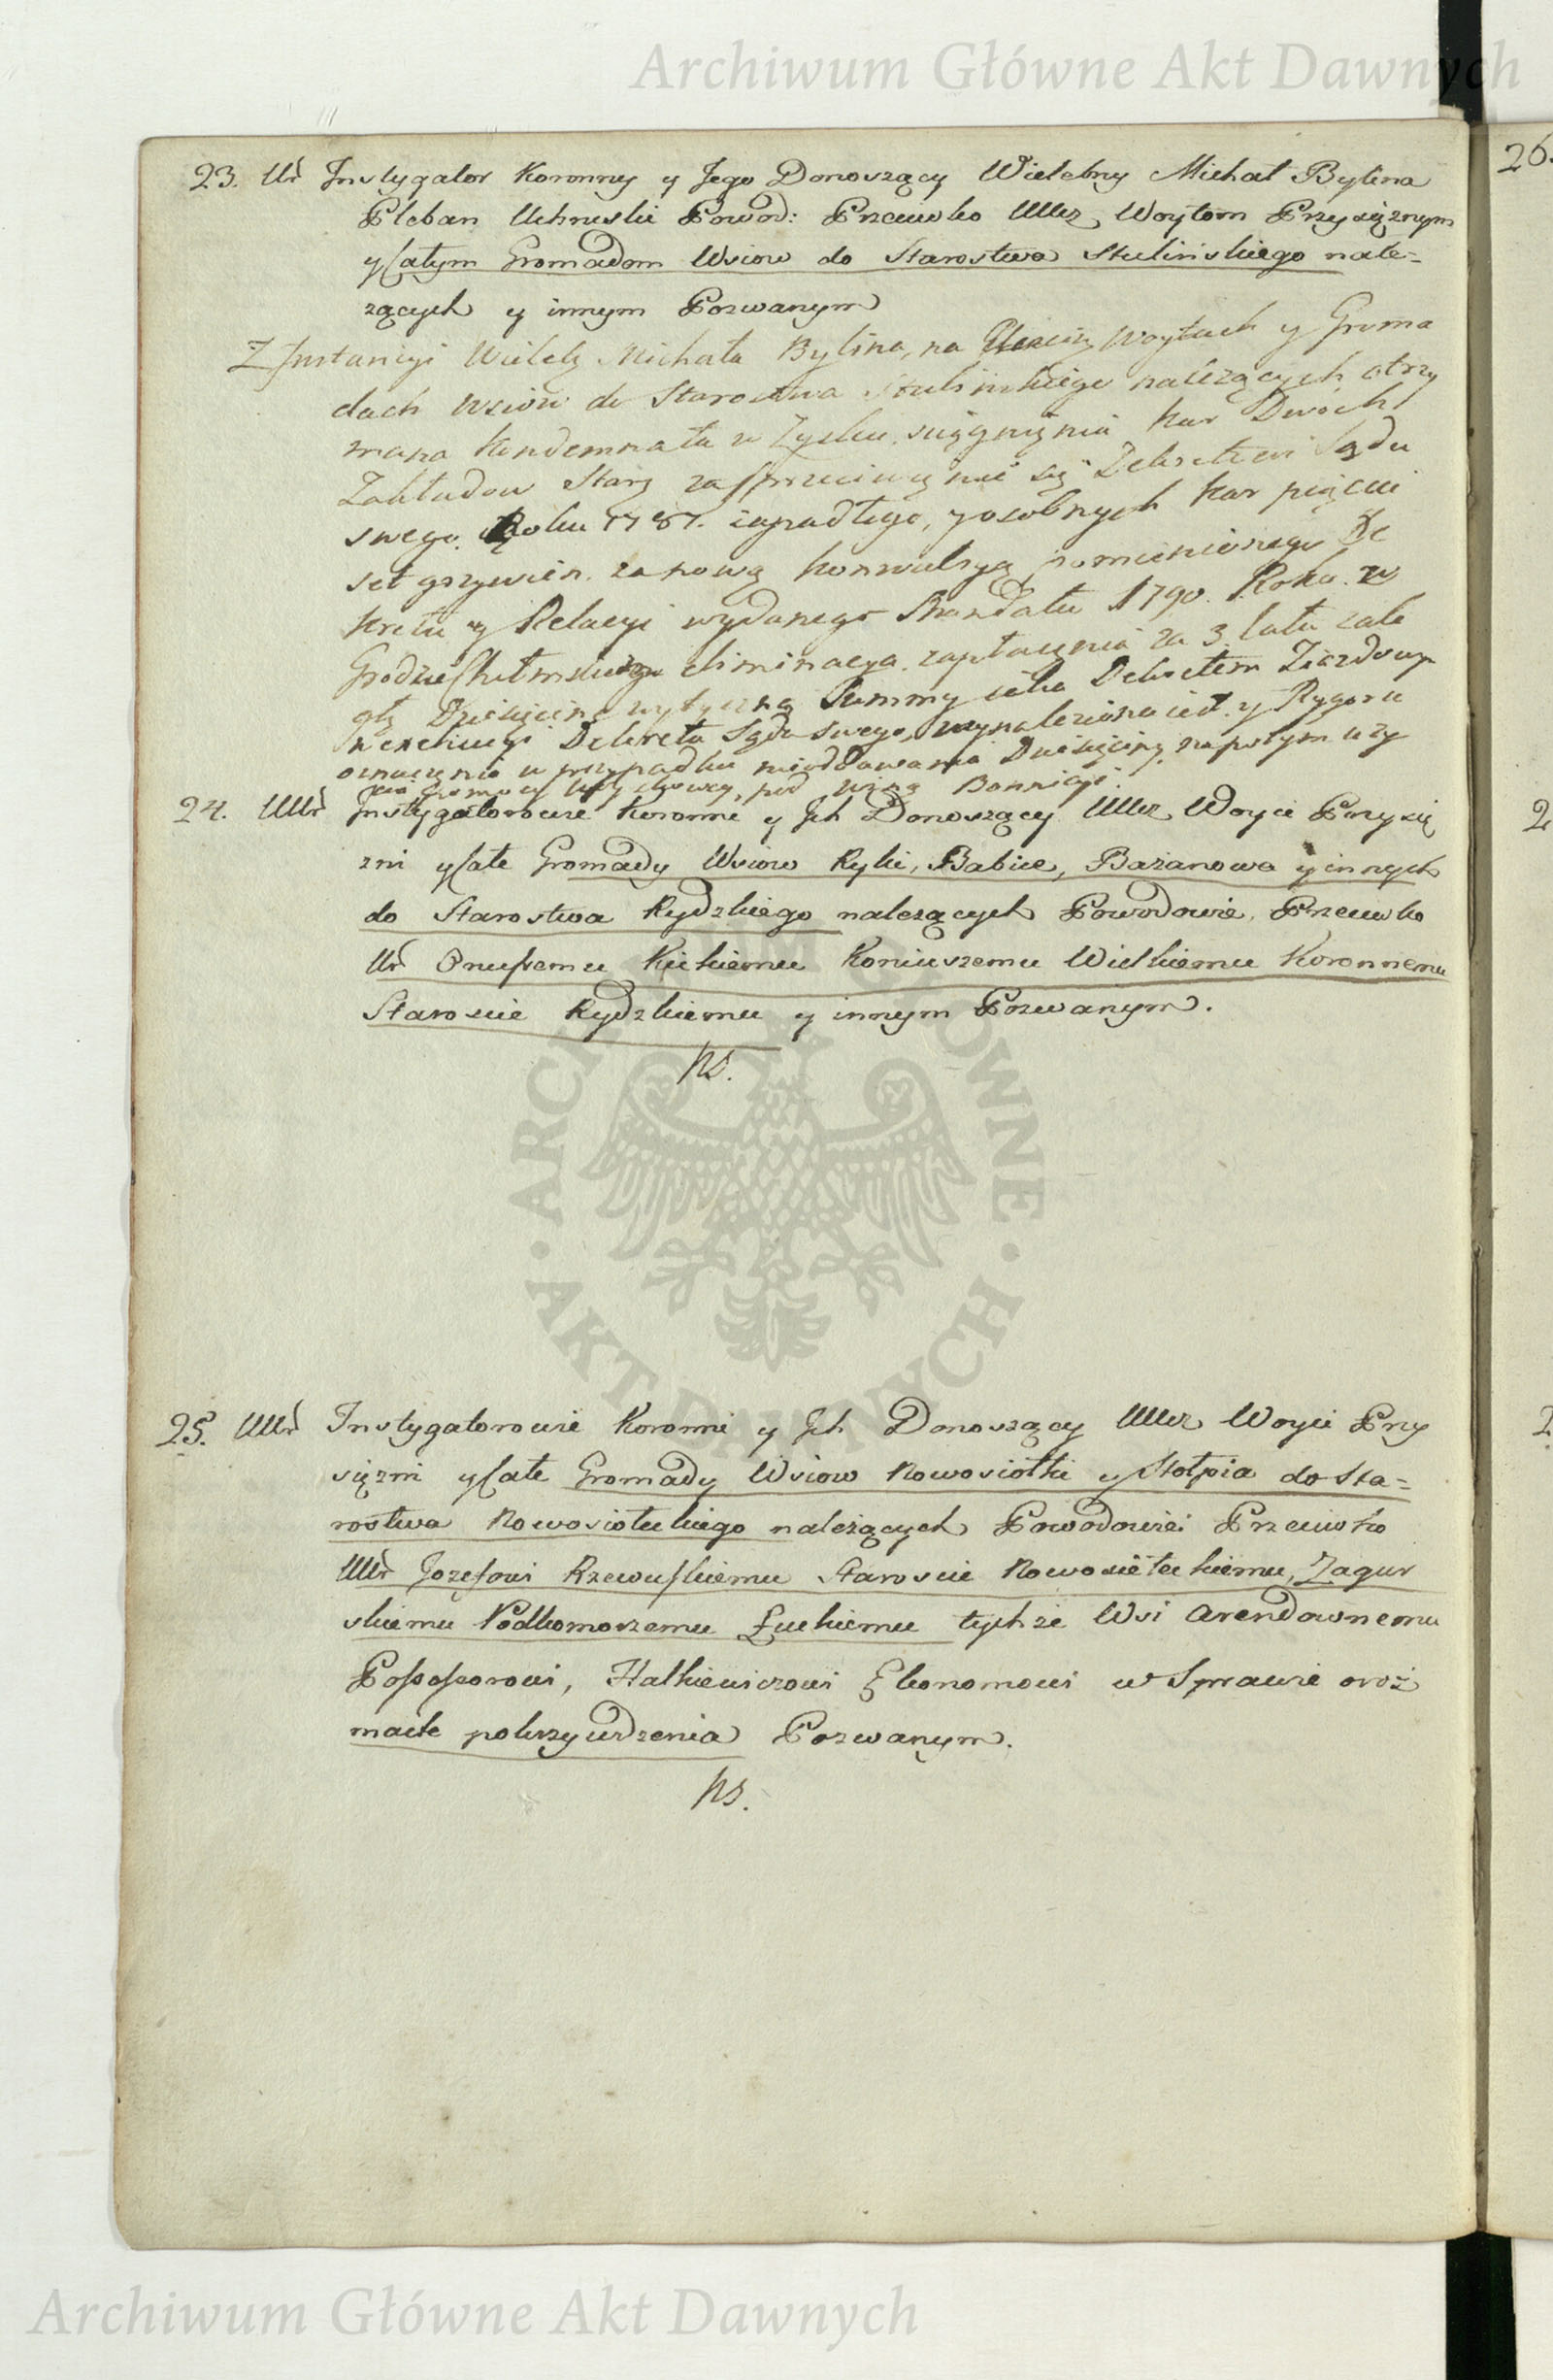 Archiwum Główne Akt Dawnych
23. Ur Instygator Koronny y Jego Donoszący Wielebny Michał Bylina
Pleban Uchruski Powod: Przeciwko UUcz Woytom Przysiężnym
y Całym Gromadom Wsiow do Starostwa Stulińskiego nale=
żących y innym Pozwanym
Z Jnstancyi Wieleb Michała Bylina, na Woytach y Groma
dach Wsiow do Starostwa Stulińskiego należących otrzy
mana Kondemnata w Zysku sciągnienia kar Dwoch
Zakładow Starz za sprzeciwienie się Dekretowi Sądu
swego Roku 1787. zapadłego, y osobnych kar pięciu
set grzywien. za nową konwulsyą pomienionego De
kretu y Relacyi wydanego Mandatu 1790. Roku. w
Grodzie Chełmskim eliminacya. zapłacenia za 3. lata zale
głą Dziesięcinę wytyczną Summy jaka Dekretem Ziazdowym
w exekucyi Dekretu Sądu swego, wynaleziona iest. y Rygoru
oznaczenie w przypadku nieoddawania Dziesięciny napotym uży
cia Pomocy , pod winą Bannicyi.
24. UUr Jnstygatorowie Koronni y Jch Donoszący UUcz Woyci Przysię
żni y Całe Gromady Wsiow Ryki, Babice, Bazanowa y innych
do Starostwa Rydzkiego należących Powodowie. Przeciwko
Ur Onufremu Kickiemu Koniuszemu Wielkiemu Koronnemu
Staroscie Rydzkiemu y innym Pozwanym.
ns.
25. UUr Instygatorowie Koronni y Jch Donoszący UUcz Woyci Przy
siężni y Całe Gromady Wsiow Nowosiołki y Stołpia do Sta=
rostwa Nowosiołeckiego należących Powodowie Przeciwko
UUr Jozefowi Rzewuskiemu Staroscie Nowosiołeckiemu, Zagur
skiemu Podkomorzemu Łuckiemu tychże Wsi Arendownemu
Possessorowi, Halkiewiczowi Ekonomowi w Sprawie oroż
maite pokrzywdzenia Pozwanym.
ns.
26.
2
2
ARCHIWUM GŁÓWNE · AKT DAWNYCH ·
Archiwum Główne Akt Dawnych